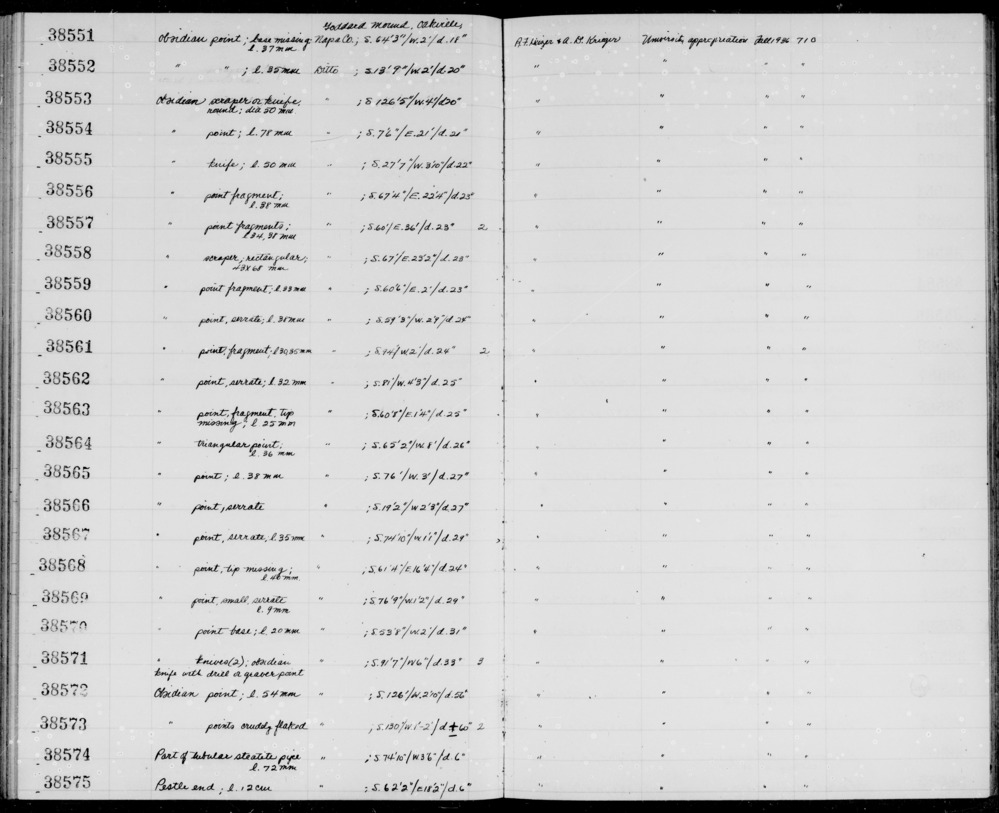 Goddard Mound, Oakville,
38551 Obsidian point; base missing Napa Co.; S. 64'3"/W. 2'/d. 18" R.F. Heizer & A.D. Krieger University appropriation Fall 1936 710
l. 37 mm
38552 " " ; l. 35 mm Ditto ; S. 13'9"/W. 2'/d. 20" " " " "
38553 Obsidian scraper or knife, " ; S 126'5"/W. 4'/d 20" " " " "
round; dia 50 mm
38554 " point; l. 78 mm " ; S. 7'6"/E. 21'/d. 21" " " " "
38555 " knife; l. 50 mm " ; S. 27'7"/W. 3'10"/d. 22" " " " "
38556 " point fragment; " ; S. 67'4"/E. 22'4"/d. 23" " " " "
l. 38 mm
38557 " point fragments; " ; S. 60'/E. 36'/d. 23" 2 " " " "
l. 34, 38 mm
38558 " scraper, rectangular, " ; S. 67'/E. 23'2"/d. 23" " " " "
43 x 68 mm
38559 " point fragment, l. 33 mm " ; S. 60'6"/E. 2'/d. 23" " " " "
38560 " point, serrate; l. 31 mm " ; S. 59'3"/W. 29"/d. 24" " " " "
38561 " point, fragment; l 30, 35 mm " ; S. 74'/W. 2'/d. 24" 2 " " " "
38562 " point, serrate; l. 32 mm " ; S. 81'/W. 4'3"/d. 25" " " " "
38563 " point, fragment, tip " ; S. 60'8"/E. 1'4"/d. 25" " " " "
missing; l. 25 mm
38564 " triangular point; " ; S. 65'2"/W. 8'/d. 26" " " " "
l. 36 mm
38565 " point; l. 38 mm " ; S. 76'/W. 3'/d. 27" " " " "
38566 " point, serrate " ; S. 19'2"/W 2'3"/d. 27" " " " "
38567 " point, serrate, l. 35 mm " ; S. 74'10"/W. 1'1"/d. 29" " " " "
38568 " point, tip missing; " ; S. 61'4"/E 16'4"/d. 24" " " " "
l. 46 mm
38569 " point, small, serrate " ; S. 76'9"/W. 1'2"/d. 29" " " " "
l. 9 mm
38570 " point base; l. 20 mm " ; S. 53'8"/W. 2'/d. 31" " " " "
38571 " knives (2); obsidian " ; S. 91'7"/W 6"/d. 33" 3 " " " "
knife with drill or graver point
38572 Obsidian point; l. 54 mm " ; S. 126'/W. 2'10"/d. 56" " " " "
38573 " points crudely flaked " ; S. 130'/W. 1'-2'/d ± 60" 2 " " " "
38574 Part of tubular steatite pipe " ; S. 74'10"/W 3'6"/d. 6" " " " "
l. 72 mm
38575 Pestle end; l. 12 cm " ; S. 62'2"/E 18'2"/d. 6" " " " "